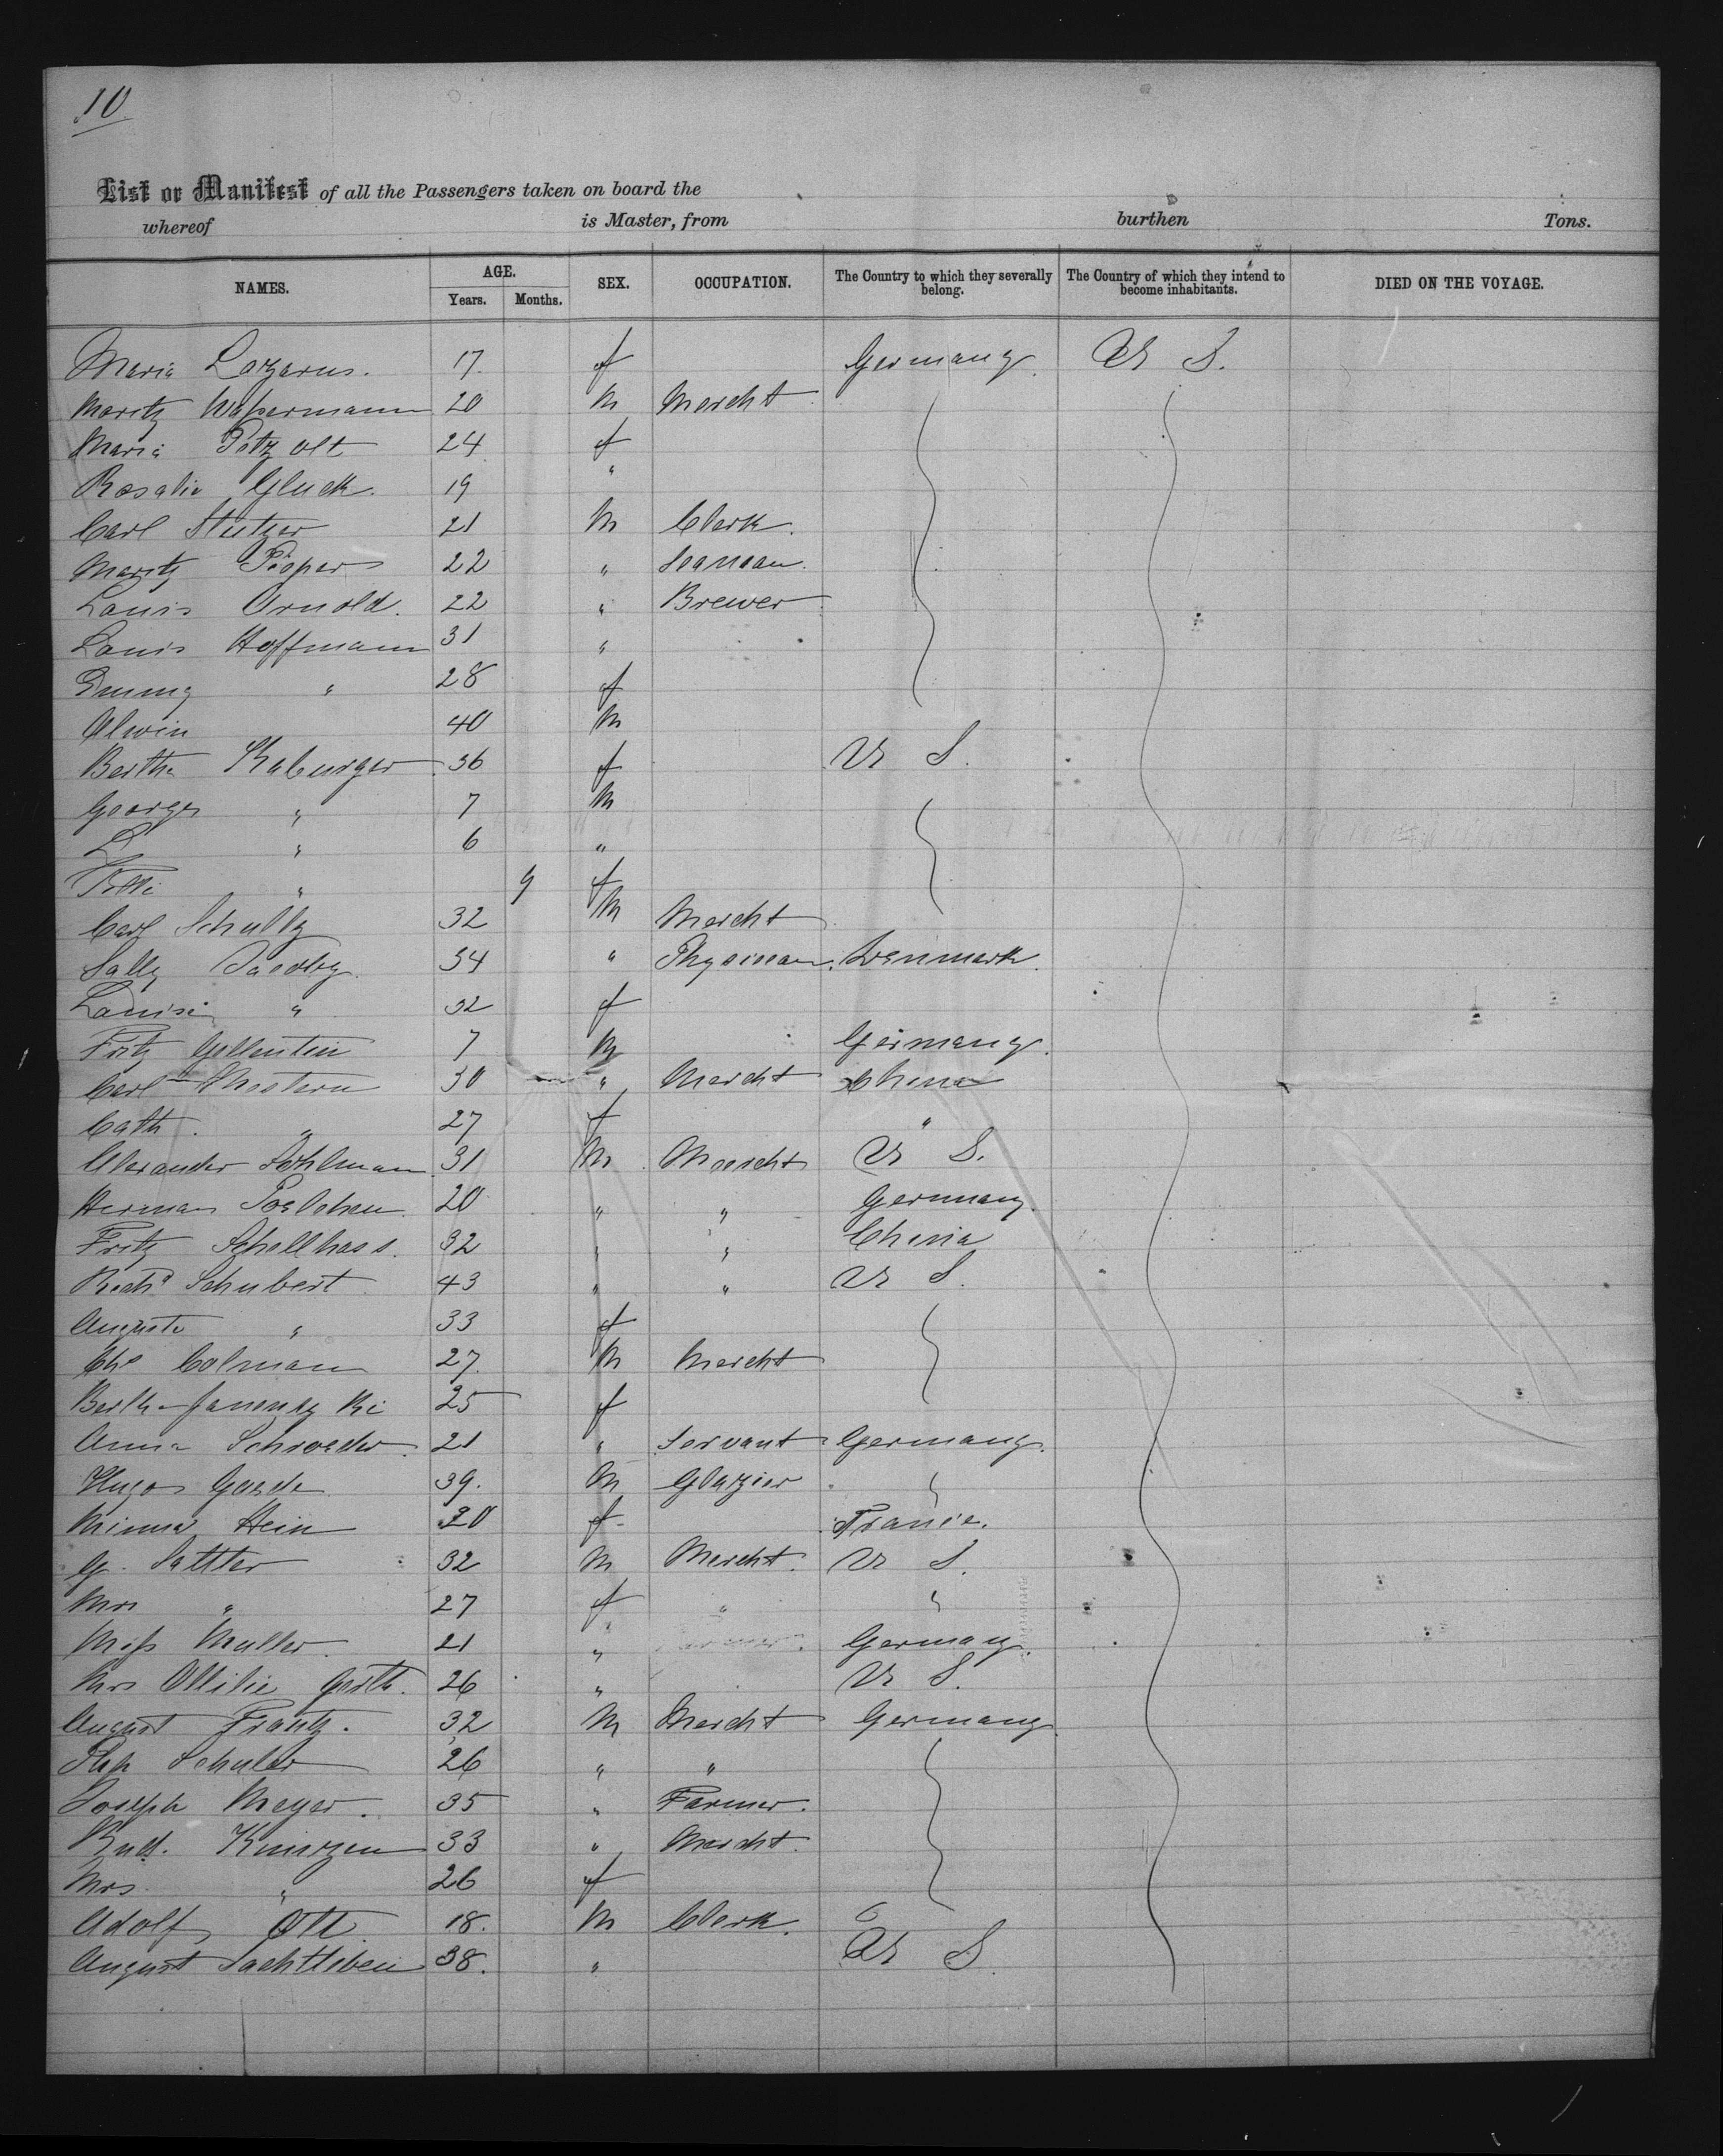 10
List or Manifest of all the Passengers taken on board the
whereof is Master, from burthen Tons.
NAMES. AGE. Years. Months. SEX. OCCUPATION. The Country to which they severally belong. The Country of which they intend to become inhabitants. DIED ON THE VOYAGE.
Maria Lazarus. 17. f Germany U S.
Moritz Waßermann 20 M Mercht
Maria Petzolt 24 f
Rosalie Gluck. 19 "
Carl Stutzer 21 M Clerk.
Moritz Pieper 22 " Seaman.
Louis Arnold. 22 " Brewer
Louis Hoffmann 31 "
Emmy " 28 f
Alwin 40 M
Bertha 36 f U S.
George " 7 M
L " 6 "
" 9 f
Carl Schultz 32 M Mercht
Sally Jacoby. 34 " Physician. Denmark.
Louise " 32 f
Fritz Gellentin 7 M Germany.
Carl 30 " Mercht China
Cath. " 27 f "
Alexander Sohlman 31 M Mercht U S.
Herman 20 " " Germany.
Fritz Schellhass. 32 " " China
Richd Schubert 43 " " U S.
Auguste " 33 f
Chs Colman 27. M Mercht
Bertha 25 f
Anna Schroeder 21 " Servant Germany.
Hugo 39. M Glazier "
Minna Hein 20 f France.
G. Sattler 32 M Mercht. U S.
Mrs " 27 f " "
Miß Muller. 21 " Germany.
Mrs Ottilie Gerth. 26 " U S.
August Frantz. 32 M Mercht Germany
Schuler 26 " "
Joseph Meyer. 35 " Farmer.
Rud. 33 " Mercht.
Mrs. " 26 f
Adolf Ott 18. M Clerk.
August Sachtleben 38. " U S.